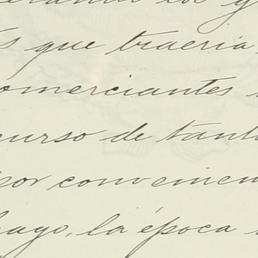 que traeria
comerciantes
curso de tant
por convenien
hago, la época